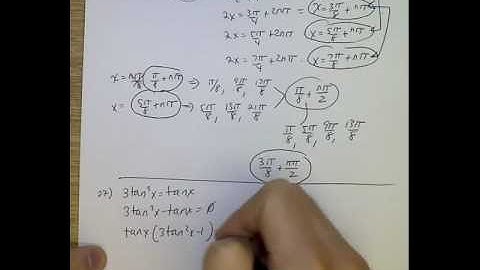 2x = 3π/4 + 2nπ = x = 3π/8 + nπ
2x = 5π/4 + 2nπ x = 5π/8 + nπ
2x = 7π/4 + 2nπ = x = 7π/8 + nπ
x = π/8 + nπ ⇒ π/8, 9π/8, 17π/8
x = 5π/8 + nπ ⇒ 5π/8, 13π/8, 21π/8
π/8 + nπ/2
π/8, 5π/8, 9π/8, 13π/8
3π/8 + nπ/2
27) 3tan³x = tanx
3tan³x - tanx = 0
tanx(3tan²x - 1)